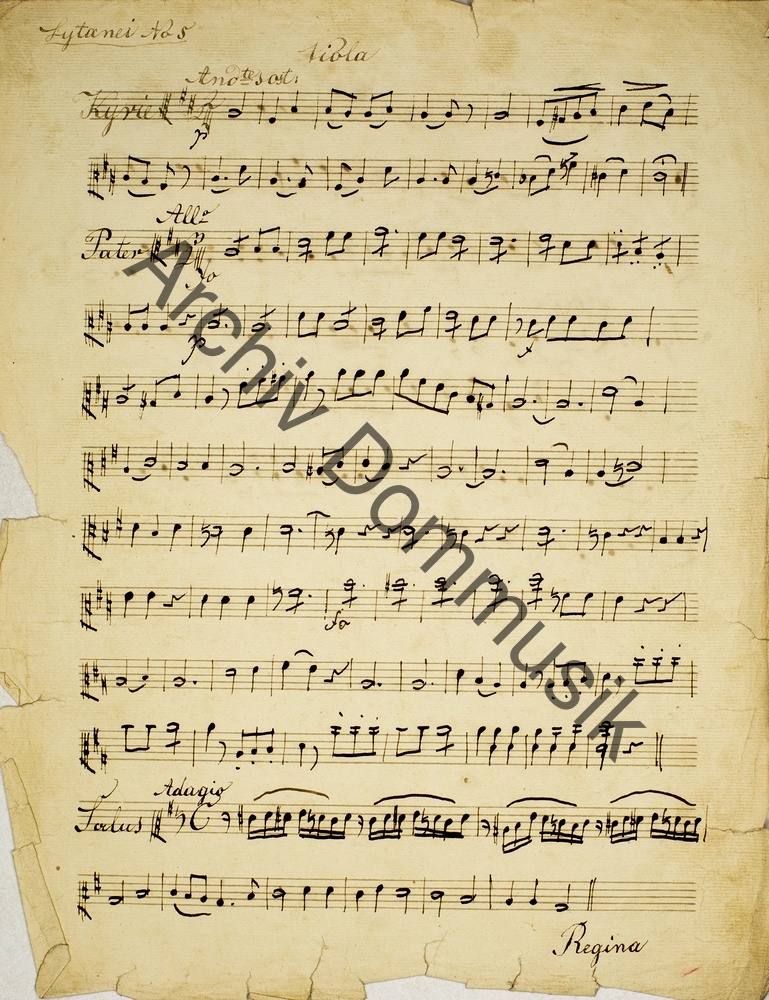 Lytanei No 5
Viola
And.te Sost:
Kyrie
p
All.o
Pater
fo
p
f
fo
Adagio
Salus
Regina
Archiv Dommusik